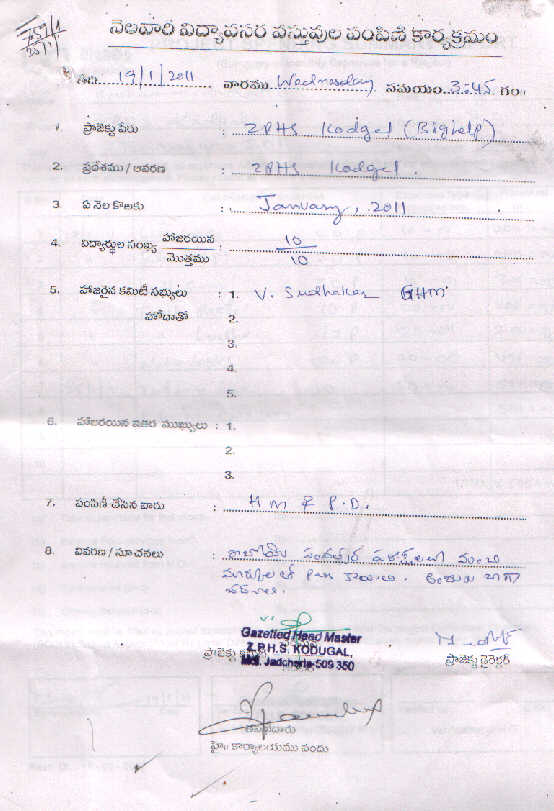 నెలవారీ విద్యావసర వస్తువుల పంపిణీ కార్యక్రమం
తేది 19/1/2011 వారము Wednesday సమయం 3:45 గం॥
1. ప్రాజెక్టు పేరు : ZPHS Kodgel (Bighelp)
2. ప్రదేశము / ఆవరణ : ZPHS Kodgel.
3. ఏ నెల కొరకు : January, 2011
4. విద్యార్థుల సంఖ్య హాజరయిన : 10
మొత్తము 10
5. హాజరైన కమిటీ సభ్యులు : 1. V. Sudhakar GHM
హోదాతో 2.
3.
4.
5.
6. హాజరయిన ఇతర ముఖ్యులు : 1.
2.
3.
7. పంపిణీ చేసిన వారు : HM & P.D.
8. వివరణ / సూచనలు : సంవత్సర పరీక్షలలో మంచి
మార్కులతో Pass కావాలి. బాగా
చదవాలి.
Gazetted Head Master
Z.P.H.S. KODUGAL,
Mdl. Jadcherla-509 350
ప్రాజెక్టు
ప్రాజెక్టు డైరెక్టర్
హై॥ కార్యాలయము నందు